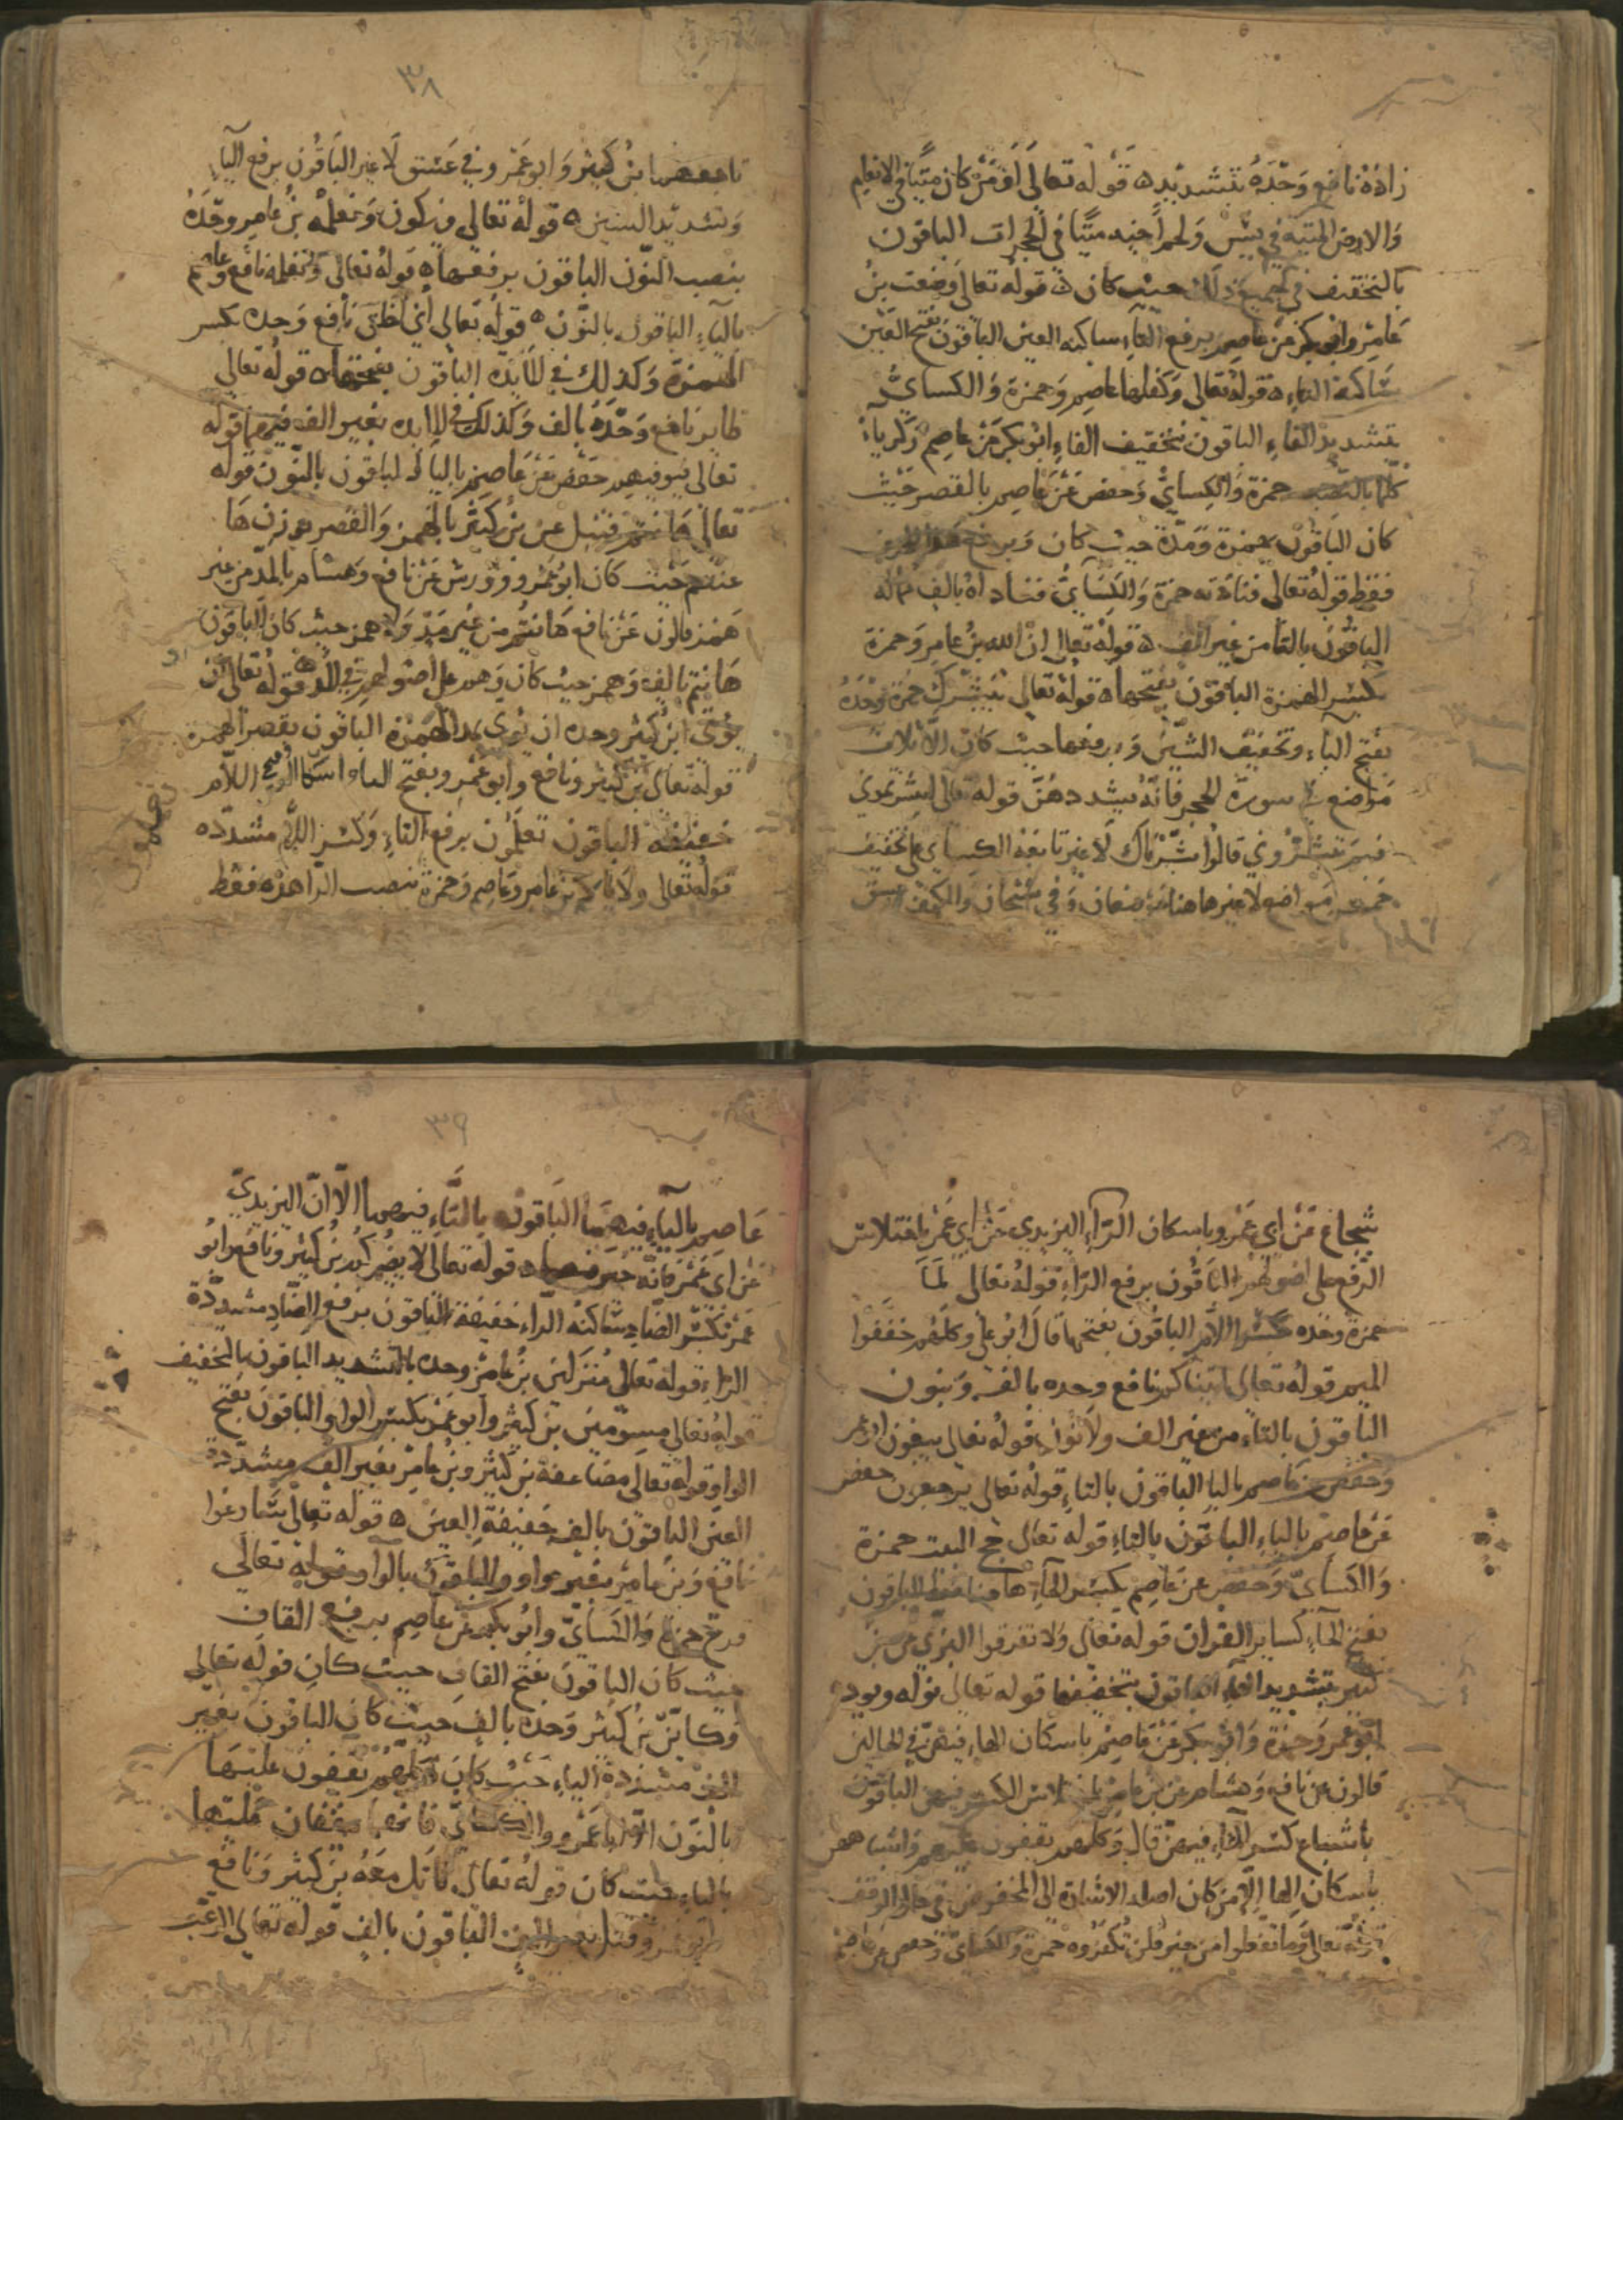 زاده نافع وحده بتشديد ه قوله تعالى أو من كان ميتا في الانعام
والارض الميتة في يس ولحم اخيه ميتا في الحجرات الباقون
بالتخفيف في جميع ذلك حيث كان ه قوله تعالى وضعت بن
عامر وابو بكر عن عاصم برفع التاء ساكنه العين الباقون بفتح العين
ساكنة التاء ه قوله تعالى وكفلها عاصم وحمزة والكسائي
بتشديد الفاء الباقون بتخفيف الفاء ابو بكر عن عاصم زكرياء
كلها بالنصب حمزة والكسائي وحفص عن عاصم بالقصر حيث
كان الباقون بهمزة ومدة حيث كان وبرفع
فقط قوله تعالى فنادته حمزة والكسائي فناداه بالف ممالة
الباقون بالتا من غير الف ه قوله تعالى ان الله بن عامر وحمزة
بكسر الهمزة الباقون بفتحها ه قوله تعالى يبشرك حمزة وحده
بفتح الياء وتخفيف الشين ورفعها حيث كان الا ثلاث
مواضع في سورة الحجر فانه يشددهن قوله تعالى ابشرتموني
فبم تبشروني قالوا بشرناك لا غير تابعه الكسائي على تخفيف
خمس مواضع لا غير ها هنا موضعان وفي سبحان والكهف
٣٨
بن كثير وابو عمرو في عسق لا غير الباقون برفع الياء
وتشديد الشين ه قوله تعالى فيكون ونعلمه بن عامر وحده
بنصب النون الباقون برفعها ه قوله تعالى ونعلمه نافع وعاصم
بالياء الباقون بالنون ه قوله تعالى أني أخلق نافع وحده بكسر
الهمزة وكذلك في المائدة الباقون بفتحها ه قوله تعالى
طاير نافع وحده بالف وكذلك في المائدة بغير الف فيهما قوله
تعالى فيوفيهم حفص عن عاصم بالياء الباقون بالنون قوله
تعالى هانتم قنبل عن بن كثير بالهمز والقصر بوزن ها
عنتم حيث كان ابو عمرو وورش عن نافع وهشام بالمد من غير
همز قالون عن نافع هانتم من غير مد ولا همز حيث كان الباقون
هانتم بالف وهمز حيث كان وهم على اصولهم في المد ه قوله تعالى ان
يوتى ابن كثير وحده ان يوتى بمد الهمزة الباقون بقصر الهمزة
قوله تعالى بن كثير ونافع وابو عمرو بفتح التاء اللام
خفيفه الباقون تعلمون برفع التاء وكسر اللام مشدده
قوله تعالى ولا يامركم بن عامر وعاصم وحمزة بنصب الرا هذه فقط
شجاع عن ابي عمرو باسكان الراء اليزيدي عن ابي عمرو باختلاس
الرفع على اصولهم الباقون برفع الراء قوله تعالى لما
حمزة وحده بكسر اللام الباقون بفتحها قال ابو علي وكلهم خففوا
الميم قوله تعالى اتيناكم نافع وحده بالف ونون
الباقون بالتاء من غير الف ولا نون قوله تعالى يبغون ابو عمر
وحفص عن عاصم بالياء الباقون بالتاء قوله تعالى يرجعون حفص
عن عاصم بالياء الباقون بالتاء قوله تعالى حج البيت حمزة
والكسائي وحفص عن عاصم بكسر الحاء ها هنا فقط الباقون
بفتح الحاء كساير القران قوله تعالى ولا تفرقوا البزي عن بن
كثير بتشديد التاء الباقون بتخفيفها قوله تعالى نوله ويوده
ابو عمرو وحمزة وابو بكر عن عاصم باسكان الهاء فيهن في الحالين
قالون عن نافع وهشام عن بن عامر الكسر فيهن الباقون
باشباع كسر الهاء فيهن قال وكلهم يقفون
باسكان الها الا من كان اصله الاشارة الى المخفوض في حال الوقف
قوله تعالى وما تفعلوا من خير فلن تكفروه حمزة والكسائي وحفص عن عاصم
٣٩
عاصم بالياء فيهما الباقون بالتاء فيهما الا ان اليزيدي
عن ابي عمر فانه خير فيهما ه قوله تعالى لا يضركم بن كثير ونافع وابو
عمر بكسر الضاد ساكنه الراء خفيفة الباقون برفع الضاد مشددة
الراء قوله تعالى منزلين بن عامر وحده بالتشديد الباقون بالتخفيف
قوله تعالى مسومين بن كثير وابو عمر بكسر الواو الباقون بفتح
الواو قوله تعالى مضاعفة بن كثير وبن عامر بغير الف مشددة
العين الباقون بالف خفيفة العين ه قوله تعالى سارعوا
نافع وبن عامر بغير واو والباقون بالواو قوله تعالى
قرح حمزة والكسائي وابو بكر عن عاصم برفع القاف
حيث كان الباقون بفتح القاف حيث كان قوله تعالى
وكاين بن كثير وحده بالف حيث كان الباقون بغير
الف مشددة الياء حيث كان وكلهم يقفون عليها
بالنون الا ابا عمرو والكسائي فانهما يقفان عليها
بالياء حيث كان قوله تعالى قاتل معه بن كثير ونافع
وابو عمرو قتل بغير الف الباقون بالف قوله تعالى الرعب